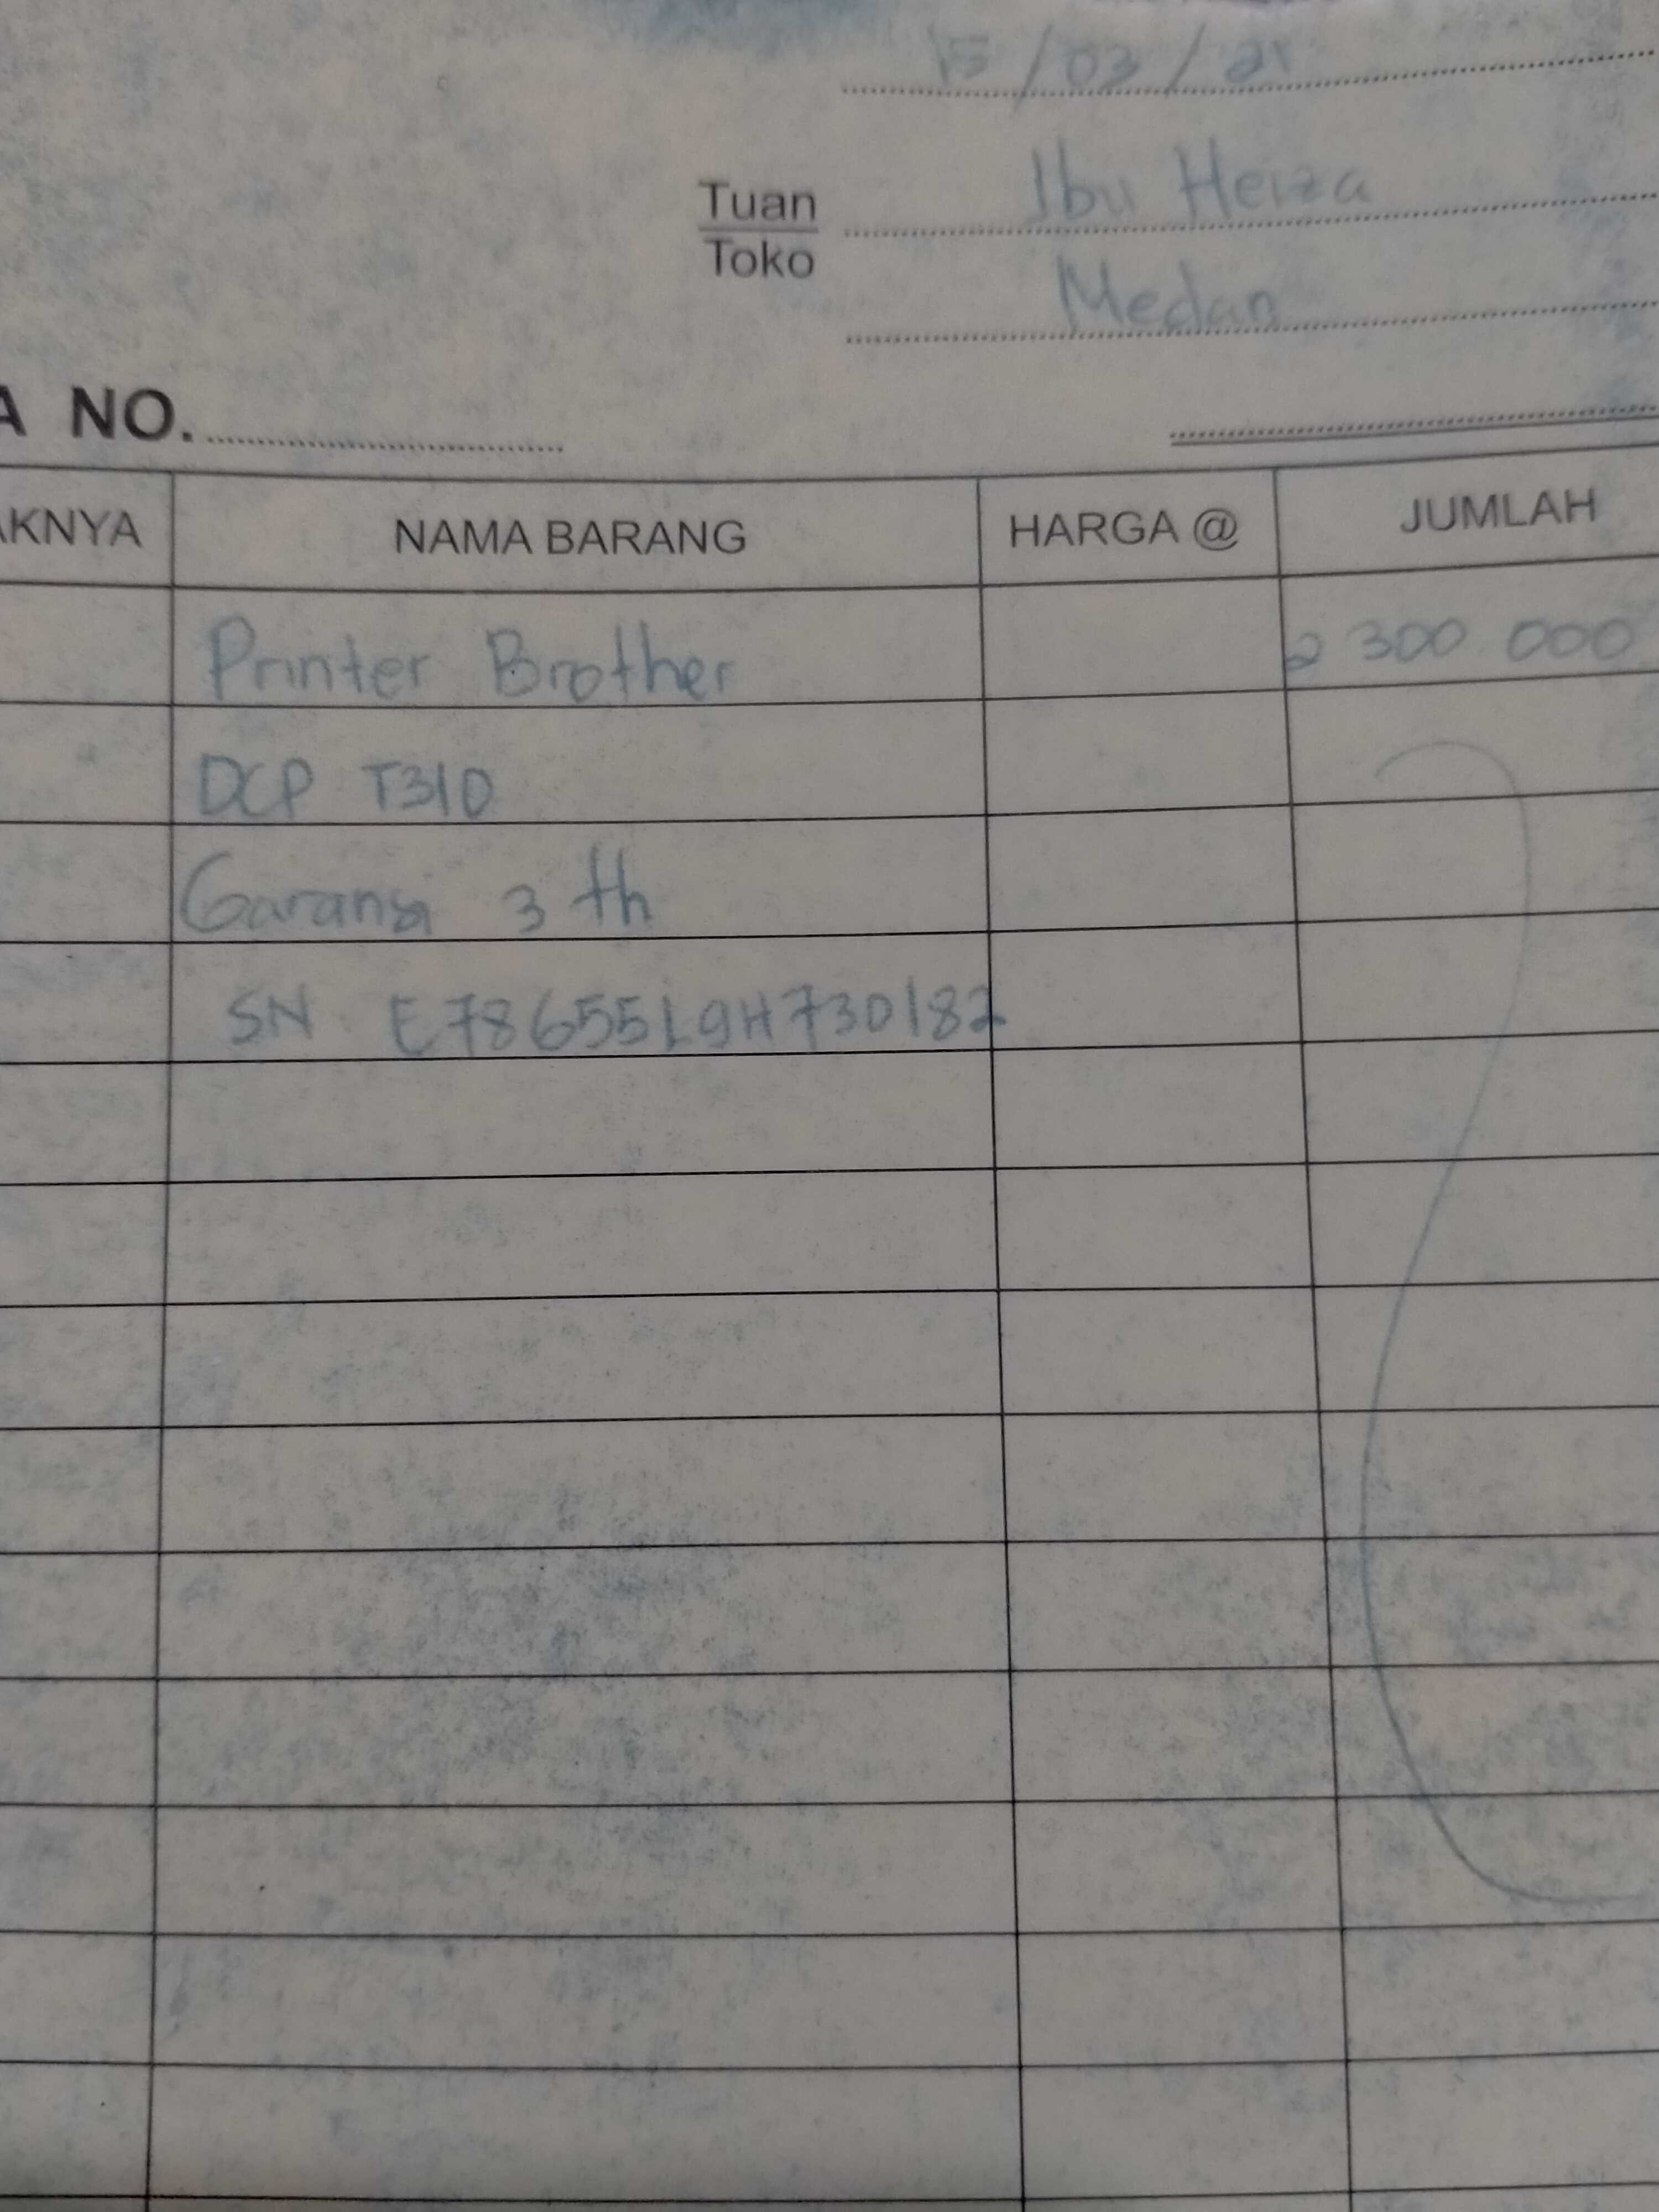 15/03/21
Tuan Ibu Heiza
Toko Medan
A NO.
AKNYA NAMA BARANG HARGA @ JUMLAH
Printer Brother 2 300 000
DCP T310
Garansi 3 th
SN E78655L9H730182